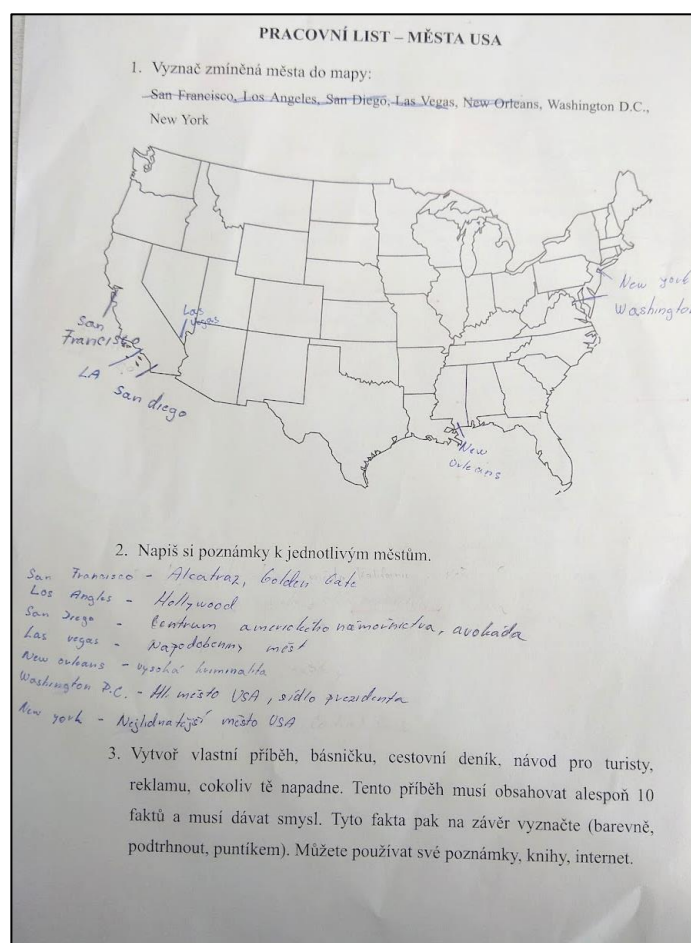 PRACOVNÍ LIST – MĚSTA USA
1. Vyznač zmíněná města do mapy:
San Francisco, Los Angeles, San Diego, Las Vegas, New Orleans, Washington D.C.,
New York
New york
Washington
Las
vegas
San
Francisco
LA
San diego
New
Orleans
2. Napiš si poznámky k jednotlivým městům.
San Francisco - Alcatraz, Golden Gate
Los Angles - Hollywood
San Diego - Centrum amerického námořnictva, avokáda
Las vegas - Napodobeniny měst
New orleans - vysoká kriminalita
Washington D.C. - Hl. město USA, sídlo prezidenta
New york - Nejlidnatější město USA
3. Vytvoř vlastní příběh, básničku, cestovní deník, návod pro turisty,
reklamu, cokoliv tě napadne. Tento příběh musí obsahovat alespoň 10
faktů a musí dávat smysl. Tyto fakta pak na závěr vyznačte (barevně,
podtrhnout, puntíkem). Můžete používat své poznámky, knihy, internet.